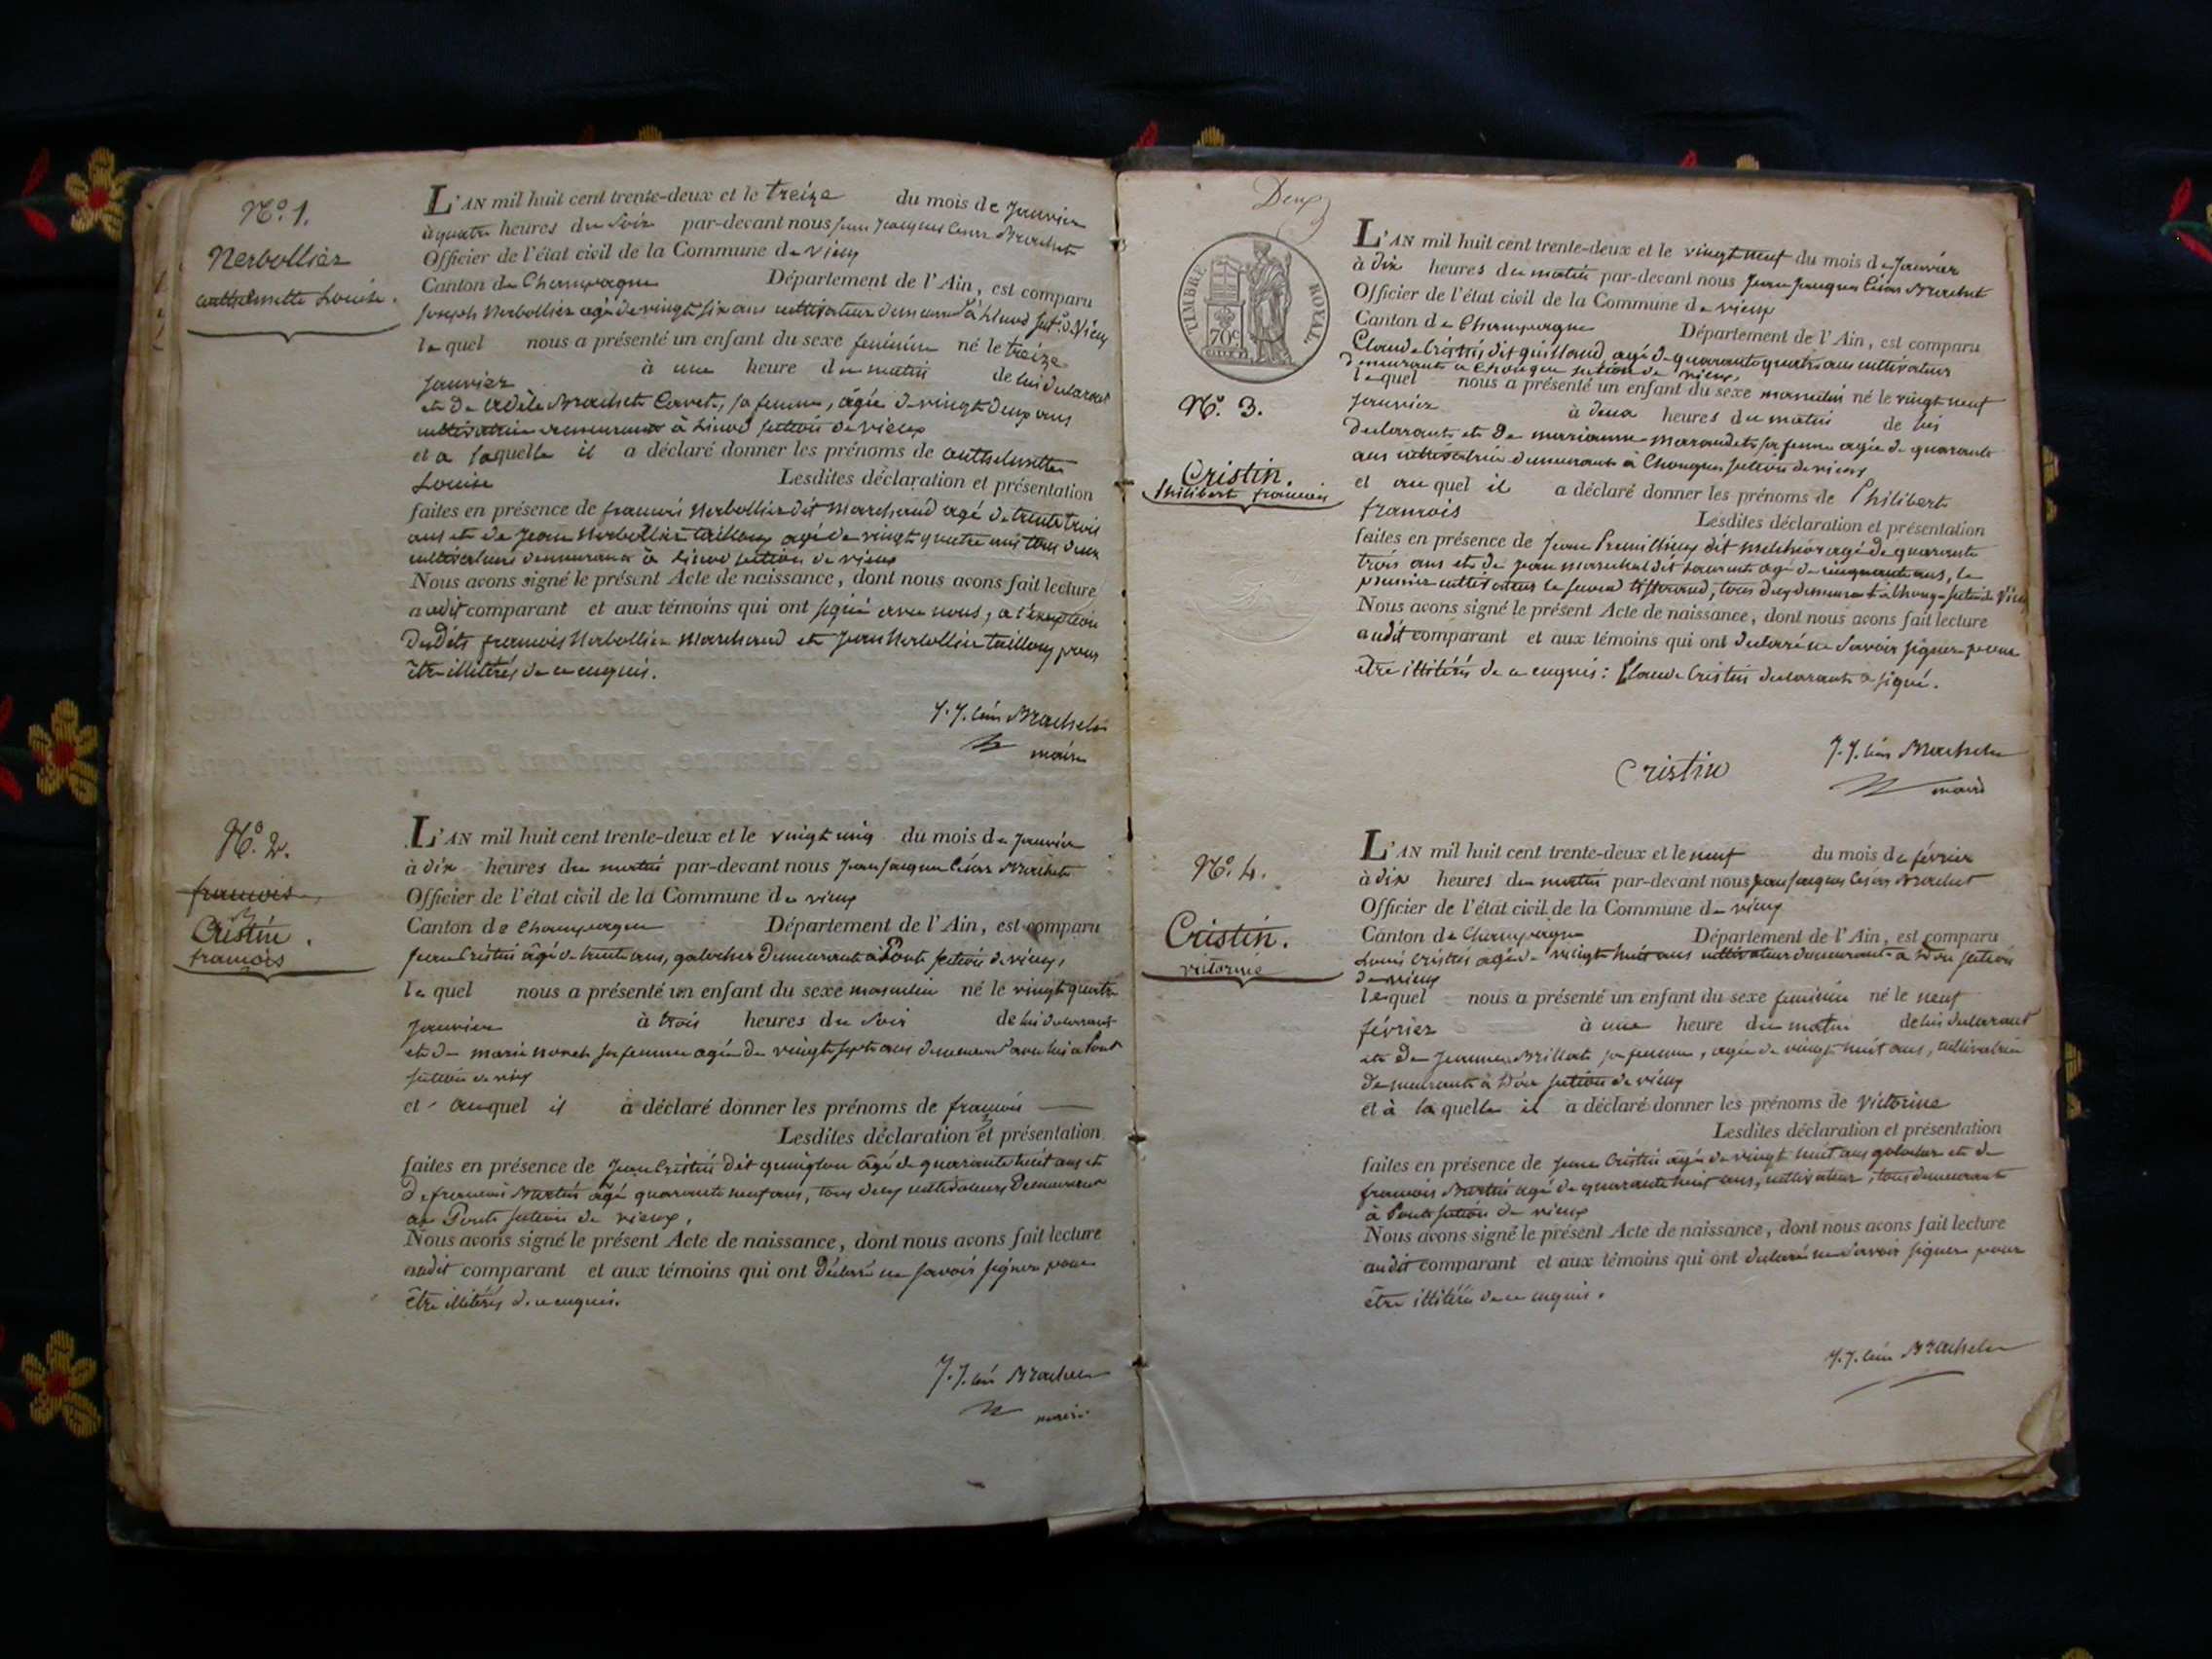 N.º 1.
Nerbollier
anthelmette Louise.
L'AN mil huit cent trente-deux et le treize du mois de Janvier
à quatre heures du soir par-devant nous Jean Jacques César Brachet
Officier de l'état civil de la Commune de Vieux
Canton de Champagne Département de l'Ain, est comparu
Joseph Nerbollier agé de vingt six ans cultivateur demeurant à Linod de Vieux
lequel nous a présenté un enfant du sexe feminin né le treize
Janvier à une heure du matin de lui declarant
et de Adèle Brachet Cavet, sa femme, âgée de vingt deux ans
cultivatrice demeurant à Linod section de vieux
et a laquelle il a déclaré donner les prénoms de anthelmette
Louise Lesdites déclaration et présentation
faites en présence de francois Nerbollier dit Marchand agé de trente trois
ans et de Jean Nerbollier tailloux agé de vingt quatre ans tous deux
cultivateurs demeurant à Linod section de vieux
Nous avons signé le présent Acte de naissance, dont nous avons fait lecture
audit comparant et aux témoins qui ont signé avec nous, a l'exeption
desdits francois Nerbollier Marchand et Jean Nerbollier tailloux pour
être illitérés de ce enquis.
J. J. César Brachet
maire
N.º 2.
francois
Cristin.
francois
L'AN mil huit cent trente-deux et le vingt cinq du mois de Janvier
à dix heures du matin par-devant nous Jean Jacques César Brachet
Officier de l'état civil de la Commune de vieux
Canton de Champagne Département de l'Ain, est comparu
Jean Cristin âgé de trente ans, galocher demeurant à Pont section de vieux,
lequel nous a présenté un enfant du sexe masculin né le vingt quatre
Janvier à trois heures du soir de lui declarant
et de marie sa femme agée de vingt sept ans demeurant avec lui a Pont
section de vieux
et auquel il a déclaré donner les prénoms de francois
Lesdites déclaration et présentation
faites en présence de Jean Cristin dit âgé de quarante huit ans et
de francois Martin âgé quarante neuf ans, tous deux cultivateurs demeurant
au Pont section de vieux,
Nous avons signé le présent Acte de naissance, dont nous avons fait lecture
audit comparant et aux témoins qui ont déclaré ne savoir signer pour
être illitérés de ce enquis.
J. J. César Brachet
maire
Deux
TIMBRE ROYAL
70c
N.º 3.
Cristin.
Philibert francois
L'AN mil huit cent trente-deux et le vingt neuf du mois de Janvier
à dix heures du matin par-devant nous Jean Jacques César Brachet
Officier de l'état civil de la Commune de vieux
Canton de Champagne Département de l'Ain, est comparu
Claude Cristin dit guilland agé de quarante quatre ans cultivateur
demeurant a Chongne section de vieux,
lequel nous a présenté un enfant du sexe masculin né le vingt neuf
Janvier à deux heures du matin de lui
declarant et de marianne sa femme agée de quarante
ans cultivatrice demeurant à Chongne section de vieux
et auquel il a déclaré donner les prénoms de Philibert
francois Lesdites déclaration et présentation
faites en présence de Jean Premillieux dit Melchior agé de quarante
trois ans et de Jean marechal dit Laurent agé de cinquante ans, le
premier cultivateur le second tisserand, tous deux demeurant à Chongne section de Vieux
Nous avons signé le présent Acte de naissance, dont nous avons fait lecture
audit comparant et aux témoins qui ont declaré ne savoir signer pour
etre illitérés de ce enquis: Claude Cristin declarant a signé.
Cristin
J. J. César Brachet
maire
N.º 4.
Cristin.
victorine
L'AN mil huit cent trente-deux et le neuf du mois de février
à dix heures du matin par-devant nous Jean Jacques Cesar Brachet
Officier de l'état civil de la Commune de vieux
Canton de Champagne Département de l'Ain, est comparu
Louis Cristin agé de vingt huit ans cultivateur demeurant a section
de vieux
lequel nous a présenté un enfant du sexe feminin né le neuf
février à une heure du matin de lui declarant
et de Jeanne Brillat sa femme, agée de vingt huit ans, cultivatrice
demeurant à section de vieux
et à laquelle il a déclaré donner les prénoms de Victorine
Lesdites déclaration et présentation
faites en présence de Jean Cristin âgé de vingt huit ans galocher et de
francois Martin agé de quarante huit ans, cultivateur, tous demeurant
à Pont section de vieux
Nous avons signé le présent Acte de naissance, dont nous avons fait lecture
audit comparant et aux témoins qui ont declaré ne savoir signer pour
être illitérés de ce enquis.
J. J. César Brachet